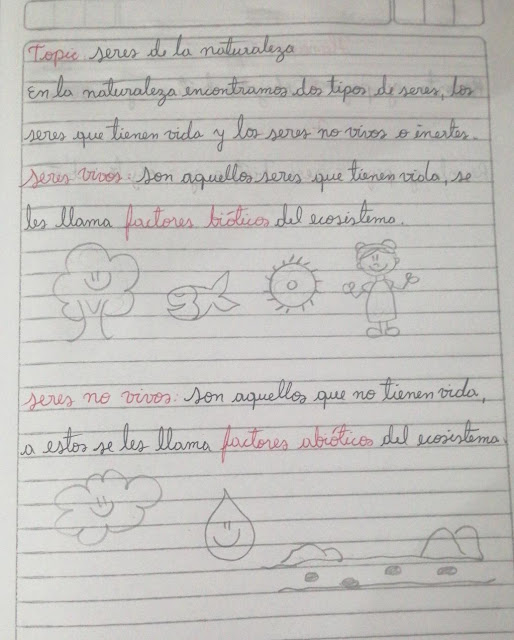 Topic seres de la naturaleza
En la naturaleza encontramos dos tipos de seres, los
seres que tienen vida y los seres no vivos o inertes.
Seres vivos: Son aquellos seres que tienen vida, se
les llama factores bióticos del ecosistema.
Seres no vivos: Son aquellos que no tienen vida,
a estos se les llama factores abióticos del ecosistema.